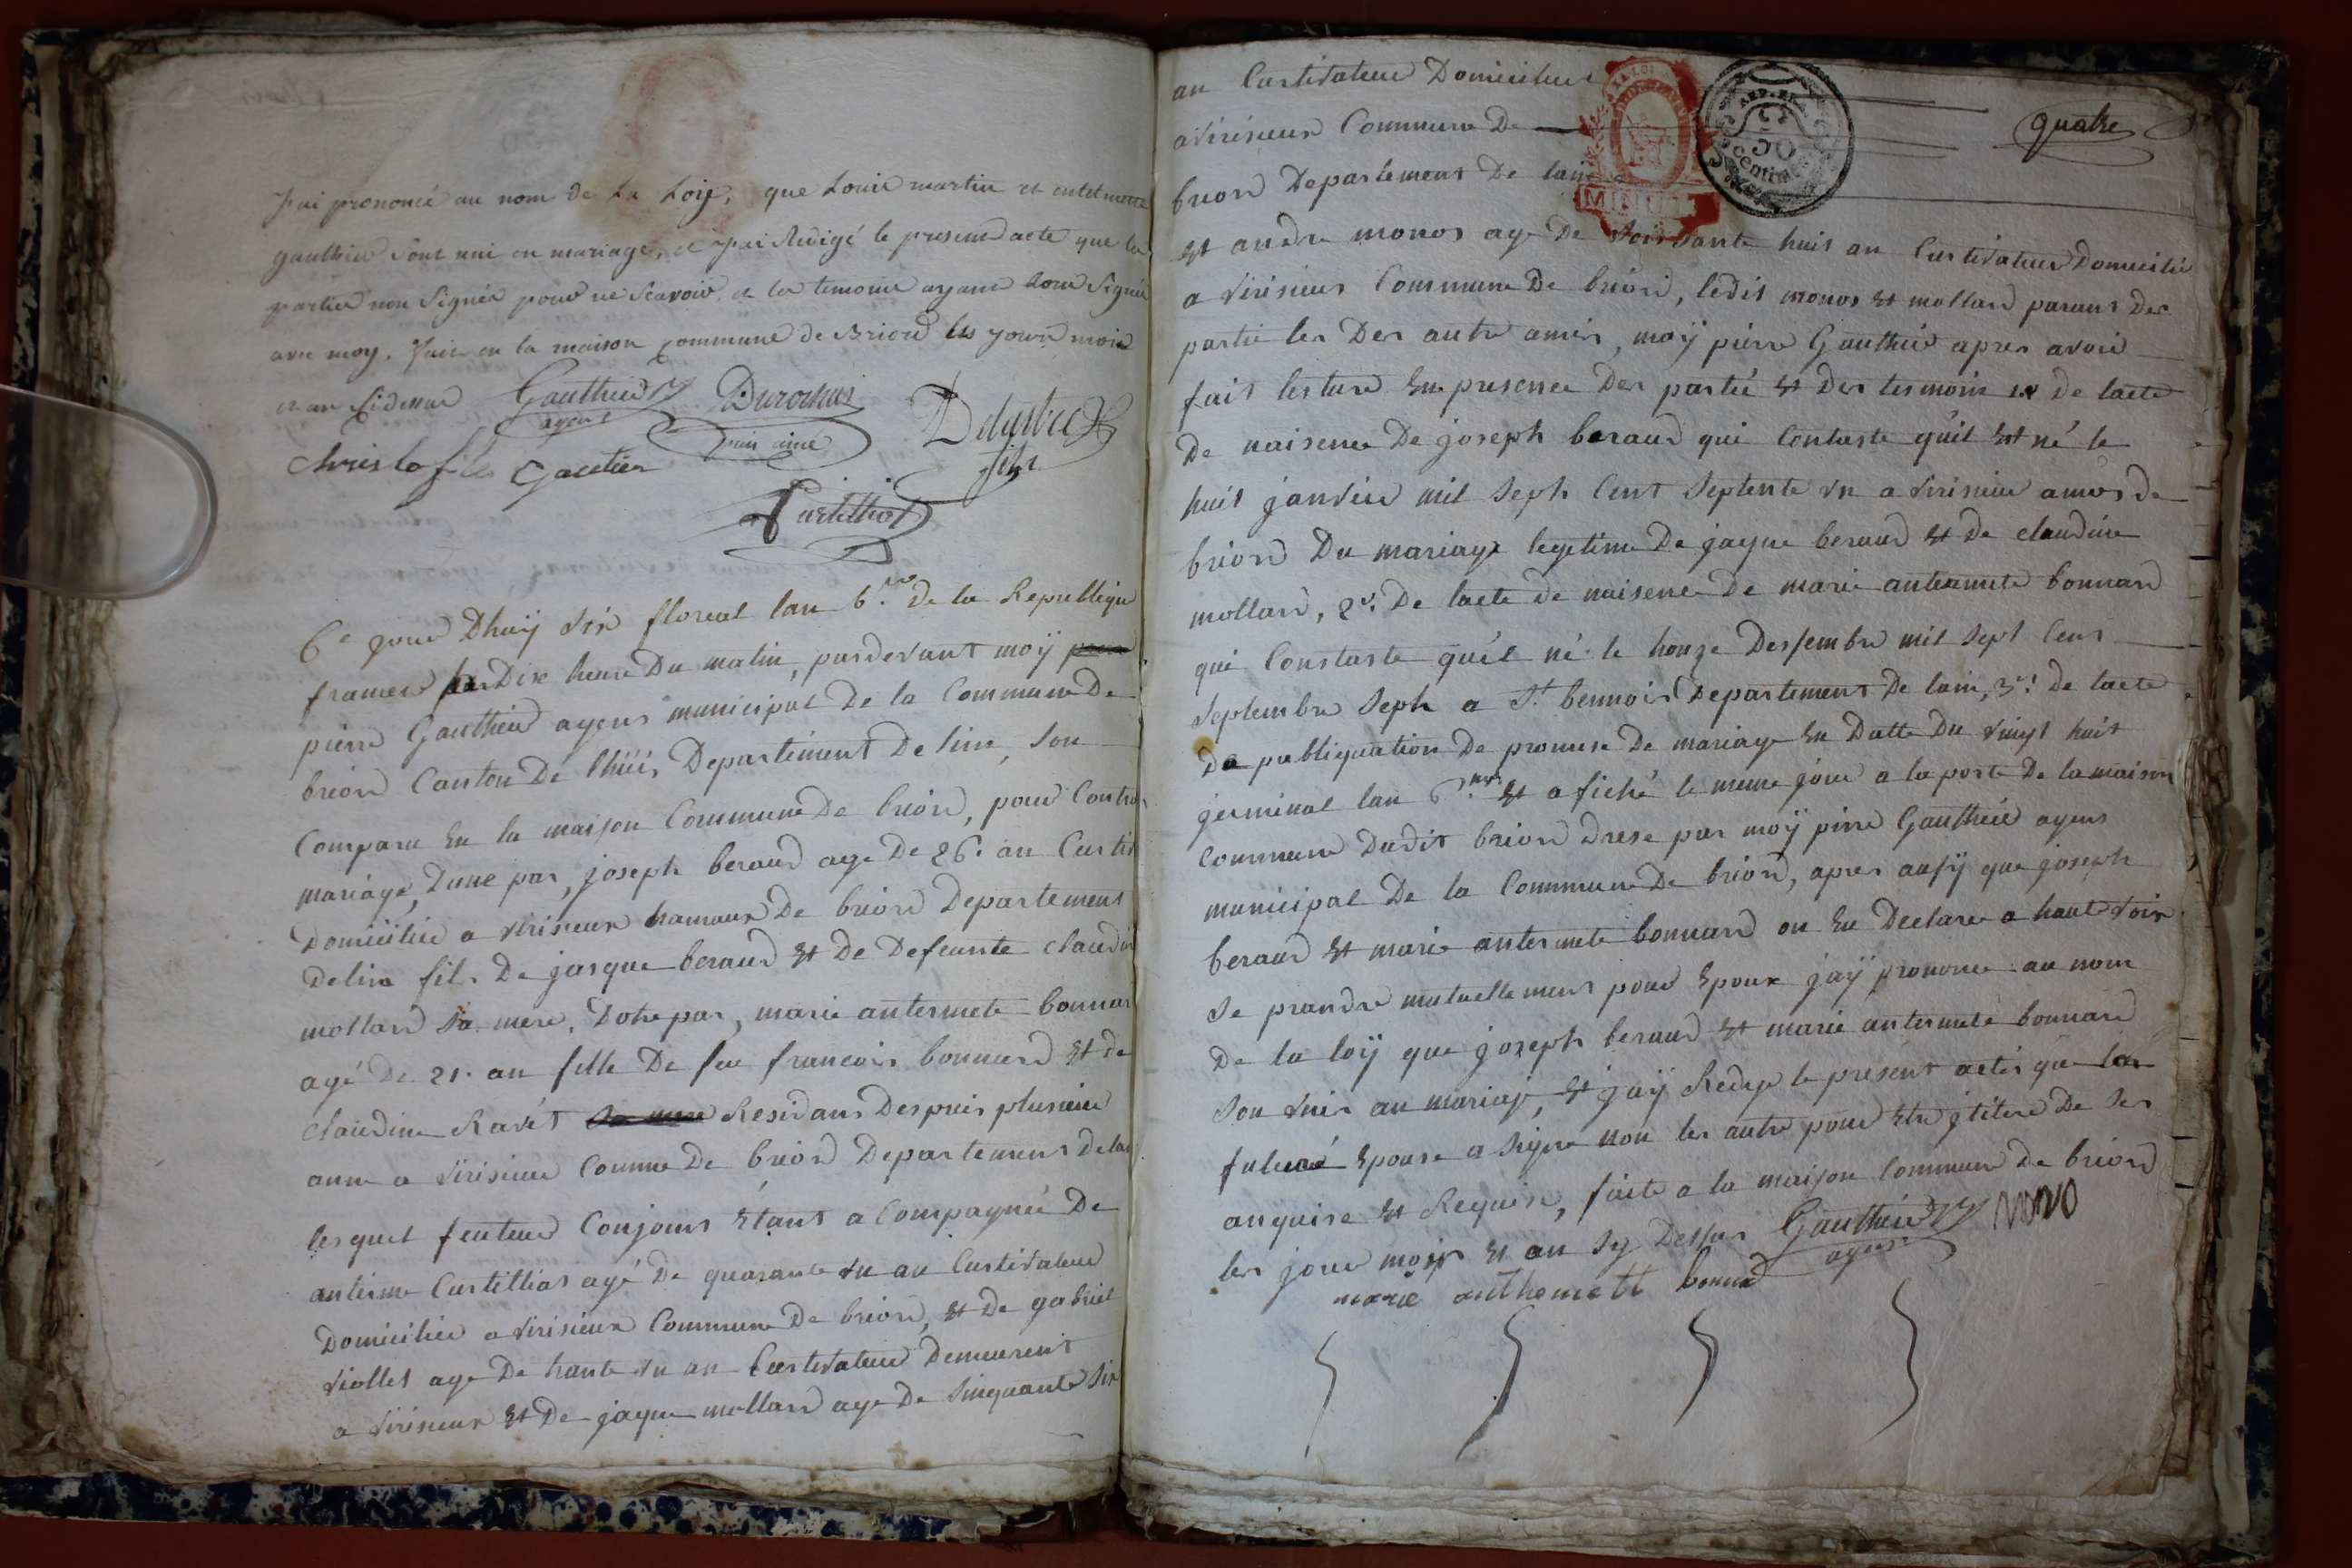 J'ai prononcé au nom de La Loy, que Louis martin et
gauthier sont uni en mariage, et j'ai Redigé le present acte que les
parties non Signée pour ne Scavoir, et les temoins ayans Tous Signé
avec moy. fait en la maison Commune de Briord les jour mois
et an Cidessus Gauthier Durochas
agent ainé Delastre
Christo fils Gautier fils
Curtilliat
6e jour Dhuÿ six floreal lan 6.me de la Republique
francese Dix heure Du matin, pardevant moÿ
pierre Gauthier agens municipal De la Commune De
briord Canton De lhuis Departement De lin, son
Comparu En la maison Commune De briord, pour Contra
mariage, Dune par, joseph beraud age De 26. an Cultiv
Domicilié a verisieux hamaux De briord Departement
De lin fils De jasque beraud Et De Defeunte claudin
mollard Sa mere, Dotre par, marie antermete bonnar
agé De 21. an fille De feu francois bonnard Et de
claudine Ravet Residans Despuis plusieur
anne a virisieu Comune De briord Departement De lai
lesquel feuteur Conjoins Etant a Compagnié De
anterme Curtilliat agé De quarante un an Cultivateur
Domicilié a virisieux Commune De briord, Et De gabriel
violles age De trante un an Cultivateur Demeurent
a virisieux Et De jaque mollard age De sinquante six
quatre
an Cultivateur Domicilier
a virisieux Commune De
briord Departement De lain
MINUT
50 centimes
Et andre monos age De soissante huit an Cultivateur Domicilié
a virisieux Commune De briord, ledit monos Et mollard parans Des
partie les Des autre amis, moÿ pierre Gauthier apres avoir
fait lesture En presence Des partié Et Des tesmoins 1er De lacte
De naisence De joseph beraud qui Contaste quil Est né le
huit janvier mil seph Cent Septente un a virisieu amos de
briord Du mariage legetime De jaque beraud Et De claudine
mollard, 2e. De lacte de naisence De marie antermete bonnard
qui Constaste quél né le honze Dessembre mil sept Cens
Septembre Seph a St. bennois Departement De lain, 3e. De lacte
De publiquation De promese De mariage En Datte Du vingt huit
germinal lan 6.me Et afiché le meme jour a la porte De la maison
Commune Dudit briord Drese par moÿ pierre Gauthier agens
municipal De la Commune De briord, apres aussÿ que joseph
beraud Et marie antermete bonnard on En Declare a haute voix
Se prandre mutuellement pour Epoux jaÿ prononce au nom
De la loÿ que joseph beraud Et marie antermete bonnard
Son unis an mariaje, Et jaÿ Redige le present actés que la
fuluré Epouse a signe non les autre pour Etre jlitere De ses
anquise Et Requise, faite a la maison Commune De briord
les jour mois Et an sy Dessus Gauthier MONO
agens
marie anthemett bonnard